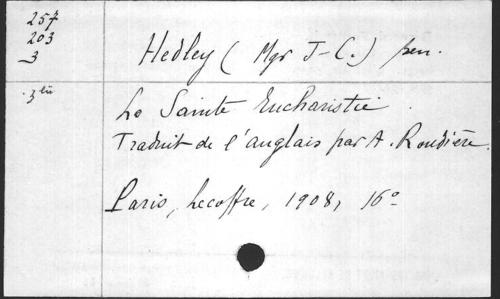 257
203
3
Hedley (Mgr J-C.) pen.
3 bis
La Sainte Eucharistie.
Traduit de l'anglais par A. Roudière.
Paris, Lecoffre, 1908, 16°